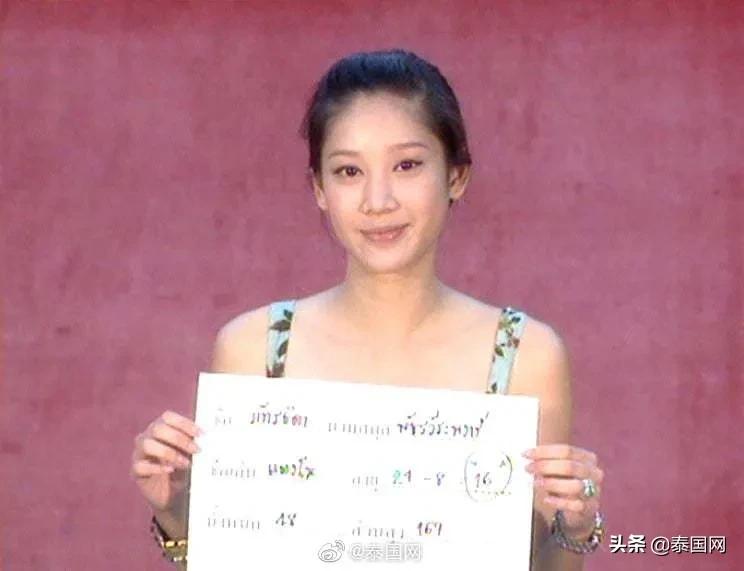 ชื่อ ภัทรธิดา นามสกุล พัชรวีระพงษ์
ชื่อเล่น แตงโม อายุ 24 -8 16
น้ำหนัก 48 ส่วนสูง 169
@泰国网
头条 @泰国网